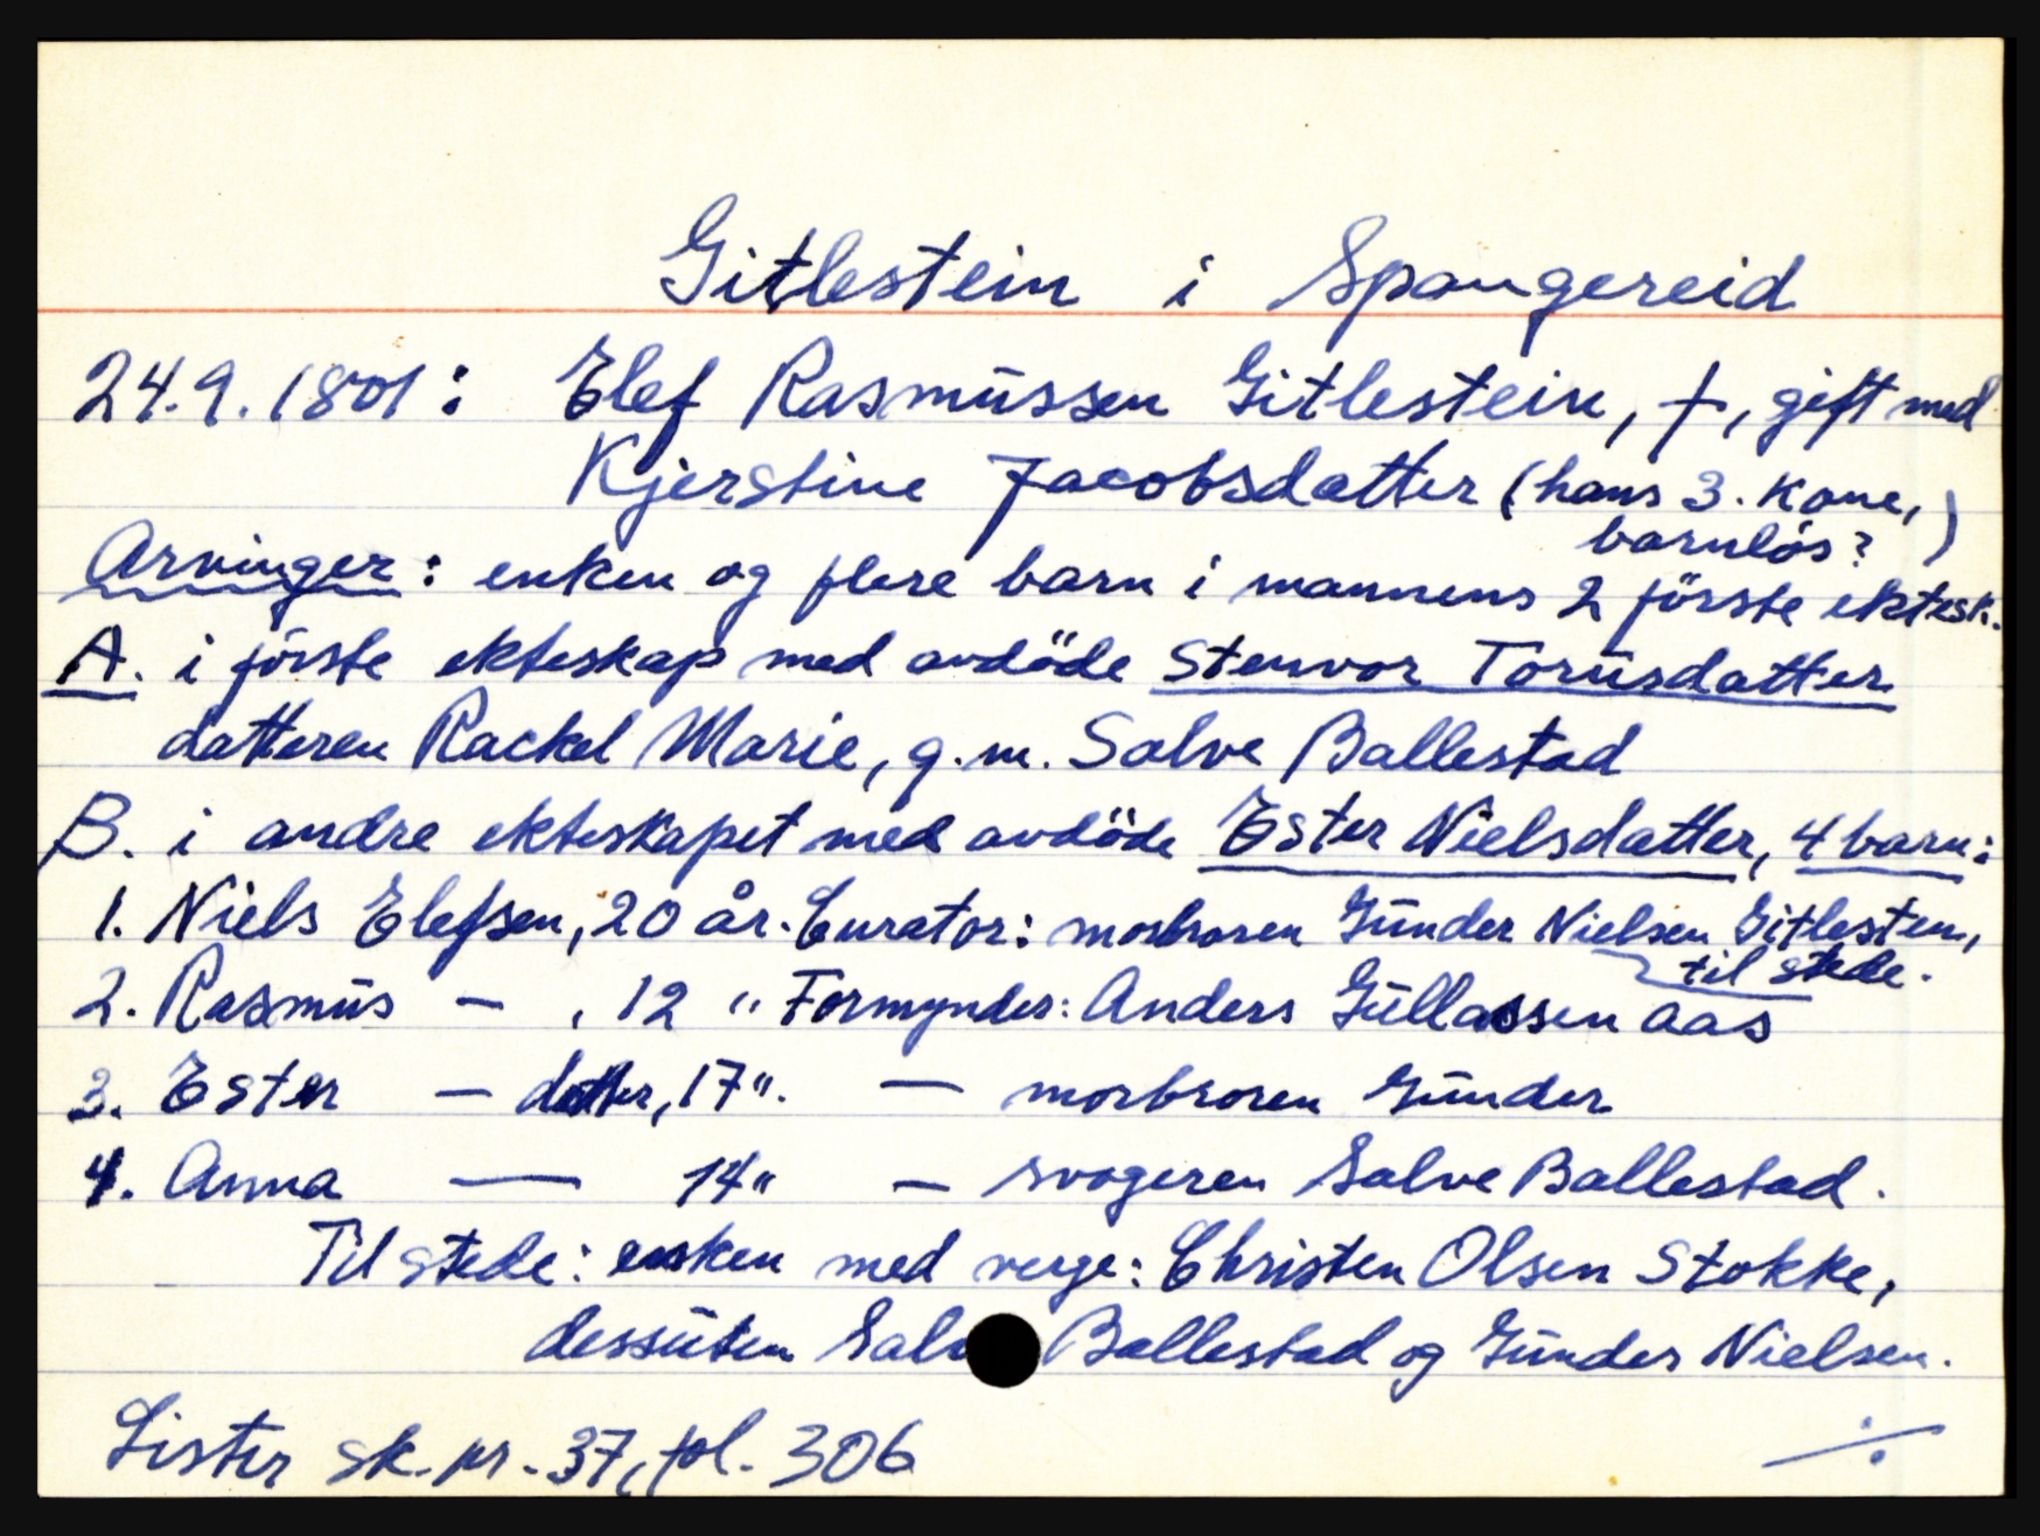 Gitlestein i Spangereid
24.9.1801: Elef Rasmussen Gitlestein, †, gift med
Kjerstine Jacobsdatter (hans 3. kone,
barnlös?)
Arvinger: enken og flere barn i mannens 2 förste ektesk.
A. i förste ekteskap med avdöde Stenvor Torusdatter
datteren Rackel Marie, g.m. Salve Ballestad
B. i andre ekteskapet med avdöde Ester Nielsdatter, 4 barn:
1. Niels Elefsen, 20 år. Curator: morbroren Gunder Nielsen Gitlesten,
til stede.
2. Rasmus — , 12 " Formynder: Anders Gullassen Aas
3. Ester — datter, 17 ". — morbroren Gunder
4. Anna — 14 " — svogeren Salve Ballestad.
Til stede: enken med verge: Christen Olsen Stokke,
dessuten Salv Ballestad og Gunder Nielsen.
Lister sk. pr. 37, fol. 306
./.